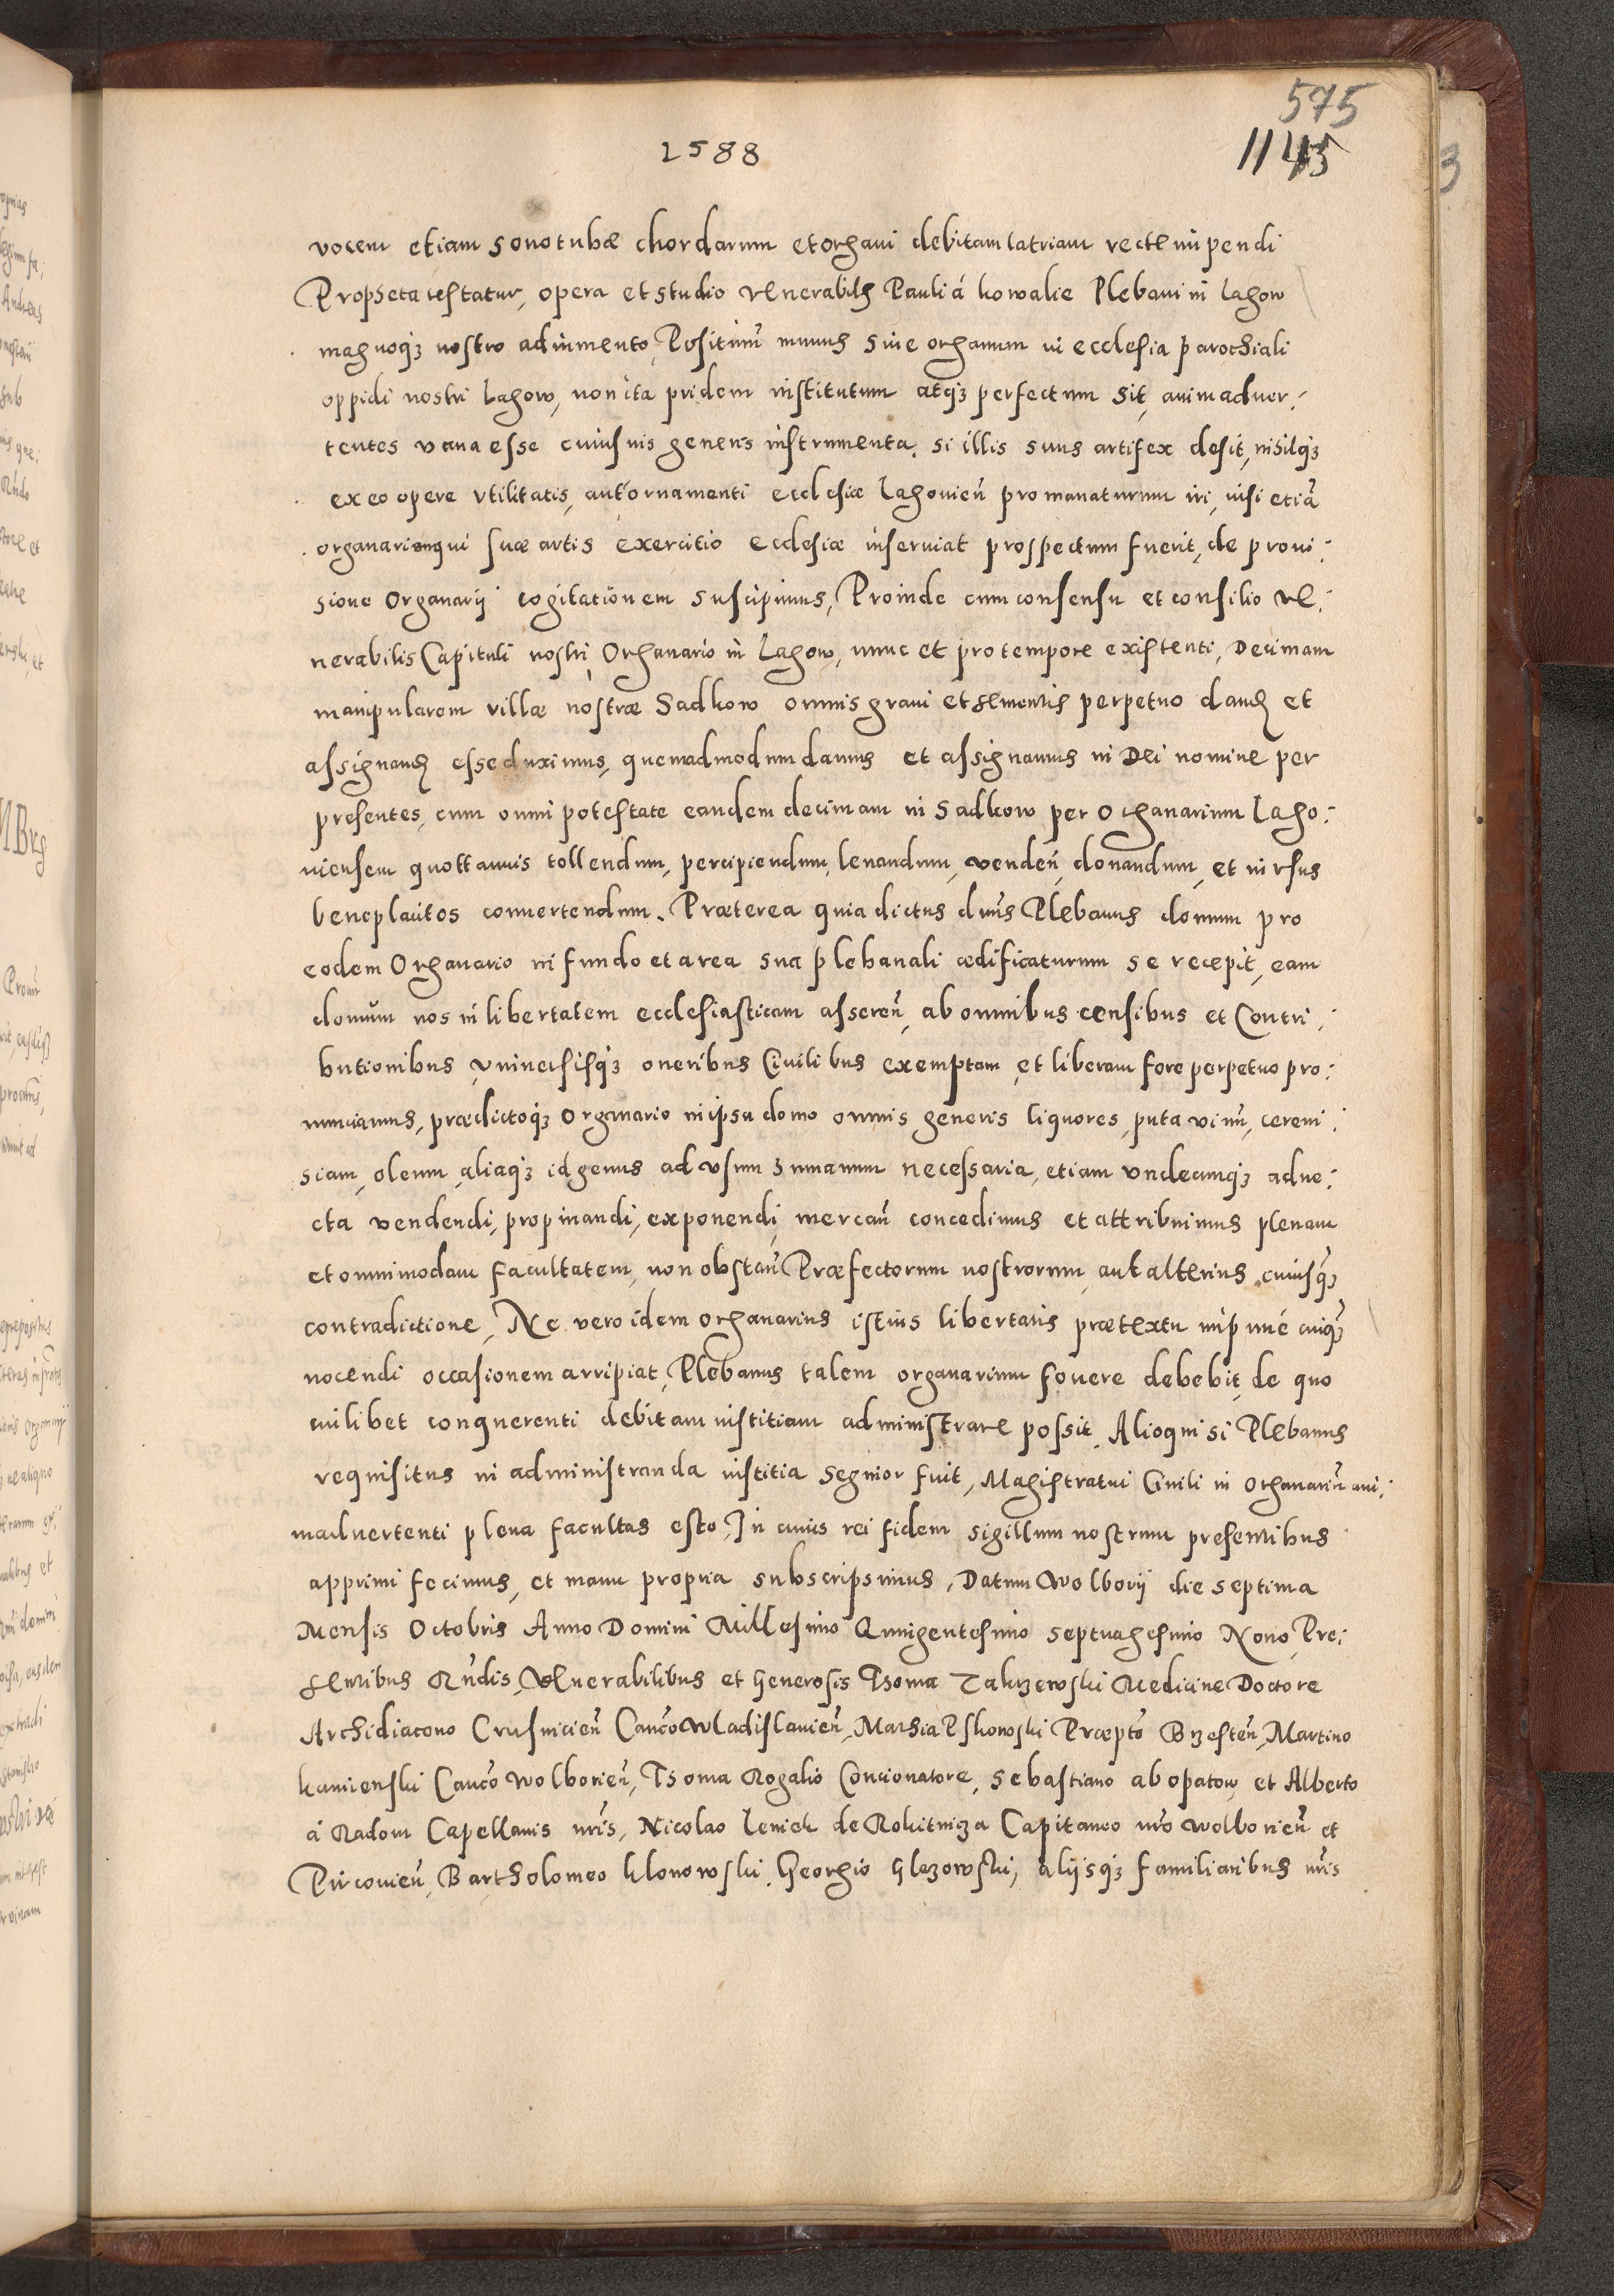 575
1588
1145
3
vocem etiam sonotubæ chordarum et organi debitam latriam recte impendi
Propheta testatur, opera et studio Venerabilis Pauli á kowalie Plebani in Lagow
magnoq3 nostro adiumento, Positiuũ munus siue organum in ecclesia parochiali
oppidi nostri Lagow, non ita pridem institutum atq3 perfectum sit, animaduer:
tentes vana esse cuiusuis generis instrumenta, si illis suus artifex desit, nihilq3
ex eo opere vtilitatis, aut ornamenti ecclesiæ Lagouien̄ promanaturum iri, nisi etiã
organario qui suæ artis exercitio ecclesiæ inseruiat prospectum fuerit, de proui:
sione Organarij cogitationem suscipimus, Proinde cum consensu et consilio Ve:
nerabilis Capituli nostri Organario in Lagow, nunc et pro tempore existenti, Decimam
manipularem villæ nostræ Sadkow omnis grani et sementis perpetuo dand et
assignand esse duximus, quemadmodum damus et assignamus in Dei nomine per
presentes, cum omni potestate eandem decimam in Sadkow per Organarium Lago:
uiensem quottannis tollendum, percipiendum, leuandum, venden̄, donandum, et in vsus
beneplacitos conuertendum. Præterea quia dictus dn̄s Plebanus domum pro
eodem Organario in fundo et area sua plebanali ædificaturum se recepit, eam
domum nos in libertatem ecclesiasticam asseren̄, ab omnibus censibus et Contri:
butionibus vniuersisq3 oneribus Ciuilibus exemptam et liberam fore perpetuo pro:
nunciamus, prædictoq3 Organario in ipsa domo omnis generis liquores, puta vinũ, cereui:
siam, oleum, aliaq3 id genus ad vsum humanum necessaria, etiam vndecunq3 adue:
cta vendendi, propinandi, exponendi, mercan̄ concedimus et attribuimus plenam
et omnimodam facultatem, non obstan̄ Præfectorum nostrorum, aut alterius cuiusq3
contradictione, Ne vero idem organarius istius libertatis prætextu impune cuiq3
nocendi occasionem arripiat, Plebanus talem organarium fouere debebit, de quo
cuilibet conquerenti debitam iustitiam administrare possit, Alioqui si Plebanus
requisitus in administranda iustitia segnior fuit, Magistratui Ciuili in Organariũ ani:
maduertenti plena facultas esto, In cuius rei fidem sigillum nostrum presentibus
apprimi fecimus, et manu propria subscripsimus, Datum Wolborij die septima
Mensis Octobris Anno Domini Millesimo Quingentesimo septuagesimo Nono, Pre:
sentibus Rn̄dis, Venerabilibus et Generosis Thoma Zakrzewski Medicine Doctore
Archidiacono Crusuicien̄ Canc̄o Wladislauien̄, Mathia Pskonoski Præpto Brzesten̄, Martino
kamienski Canc̄o Wolborien̄, Thoma Rogalio Concionatore, Sebastiano ab opatow, et Alberto
á Radom Capellanis nr̄is, Nicolao Leniek de Rokitnicza Capitaneo nr̄o Wolborien̄ et
Pircouien̄, Bartholomeo klonowski, Georgio Glezowski, alijsq3 familiaribus nr̄is